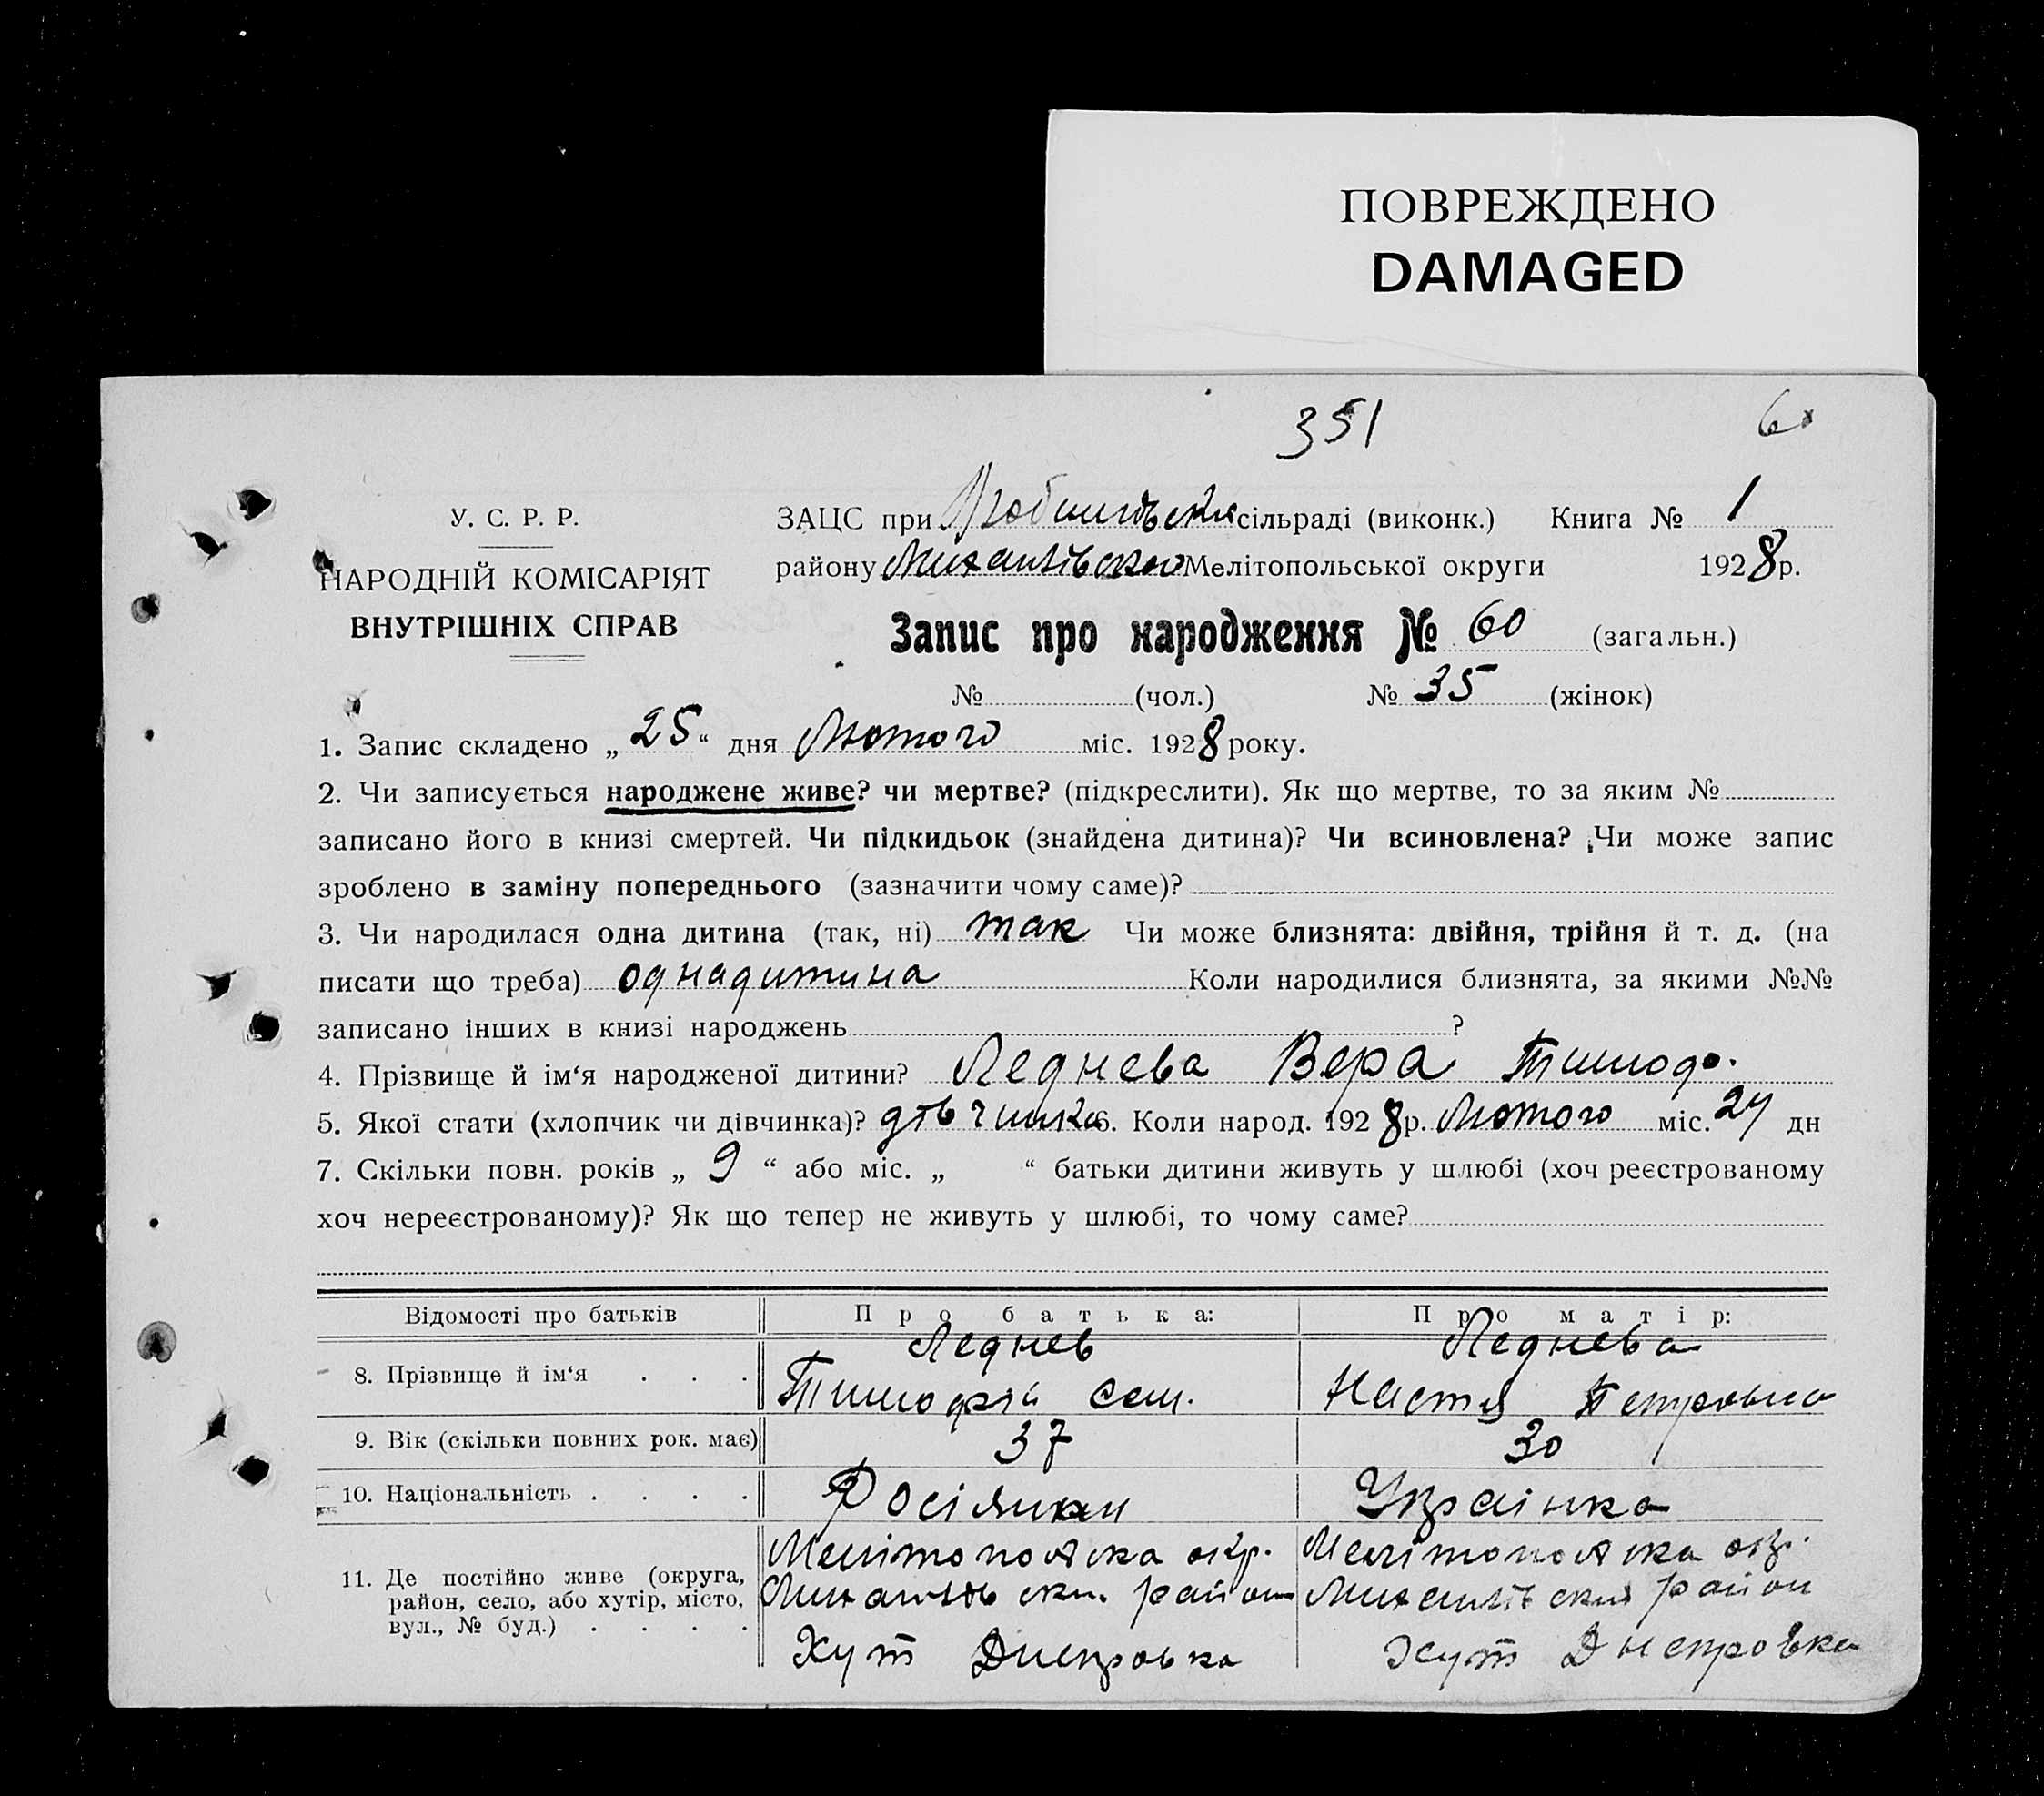 ПОВРЕЖДЕНО
DAMAGED
351
60
У. С. Р. Р.
НАРОДНІЙ КОМІСАРІЯТ
ВНУТРІШНІХ СПРАВ
ЗАЦС при сільраді (виконк.) Книга № 1
району Михайлівского Мелітопольської округи 1928 р.
Запис про народження № 60 (загальн.)
№ (чол.) № 35 (жінок)
1. Запис складено „ 25 “ дня Лютого міс. 1928 року.
2. Чи записується народжене живе? чи мертве? (підкреслити). Як що мертве, то за яким №
записано його в книзі смертей. Чи підкидьок (знайдена дитина)? Чи всиновлена? Чи може запис
зроблено в заміну попереднього (зазначити чому саме)?
3. Чи народилася одна дитина (так, ні) так Чи може близнята: двійня, трійня й т. д. (на
писати що треба) одна дитина Коли народилися близнята, за якими №№
записано інших в книзі народжень ?
4. Прізвище й ім‘я народженої дитини? Леднева Вера Тимоф.
5. Якої стати (хлопчик чи дівчинка)? дівчинка 6. Коли народ. 1928 р. Лютого міс. 24 дн
7. Скільки повн. років „ 9 “ або міс. „ “ батьки дитини живуть у шлюбі (хоч реєстрованому
хоч нереєстрованому)? Як що тепер не живуть у шлюбі, то чому саме?
Відомості про батьків Про батька: Про матір:
8. Прізвище й ім‘я . . . Леднев Леднева
Тимофій Сем. Настя Петровна
9. Вік (скільки повних рок. має) 37 30
10. Національність . . . . Росіянин Українка
11. Де постійно живе (округа,
район, село, або хутір, місто,
вул., № буд.) . . . .
Мелітопольска окр. Мелітопольска окр.
Михайлівский район Михайлівский район
Хут Днепровка Хут Днепровка